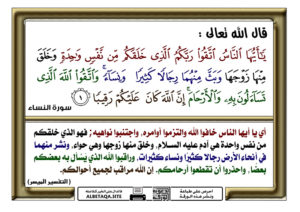 قال الله تعالى :
يَٰٓأَيُّهَا ٱلنَّاسُ ٱتَّقُوا۟ رَبَّكُمُ ٱلَّذِى خَلَقَكُم مِّن نَّفْسٍ وَٰحِدَةٍ وَخَلَقَ
مِنْهَا زَوْجَهَا وَبَثَّ مِنْهُمَا رِجَالًا كَثِيرًا وَنِسَآءً ۚ وَٱتَّقُوا۟ ٱللَّهَ ٱلَّذِى
تَسَآءَلُونَ بِهِۦ وَٱلْأَرْحَامَ ۚ إِنَّ ٱللَّهَ كَانَ عَلَيْكُمْ رَقِيبًا ١
سورة النساء
أي يا أيها الناس خافوا الله والتزموا أوامره، واجتنبوا نواهيه; فهو الذي خلقكم
من نفس واحدة هي آدم عليه السلام، وخلق منها زوجها وهي حواء، ونشر منهما
في أنحاء الأرض رجالا كثيرًا ونساء كثيرات، وراقبوا الله الذي يسأل به بعضكم
بعضا، واحذروا أن تقطعوا أرحامكم. إن الله مراقب لجميع أحوالكم.
(التفسير الميسر)
ALBETAQA.SITE